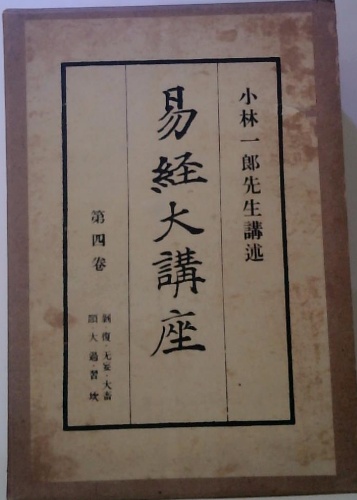 小林一郎先生講述
易経大講座
第四卷
剝・復・无妄・大畜
頤・大過・習坎